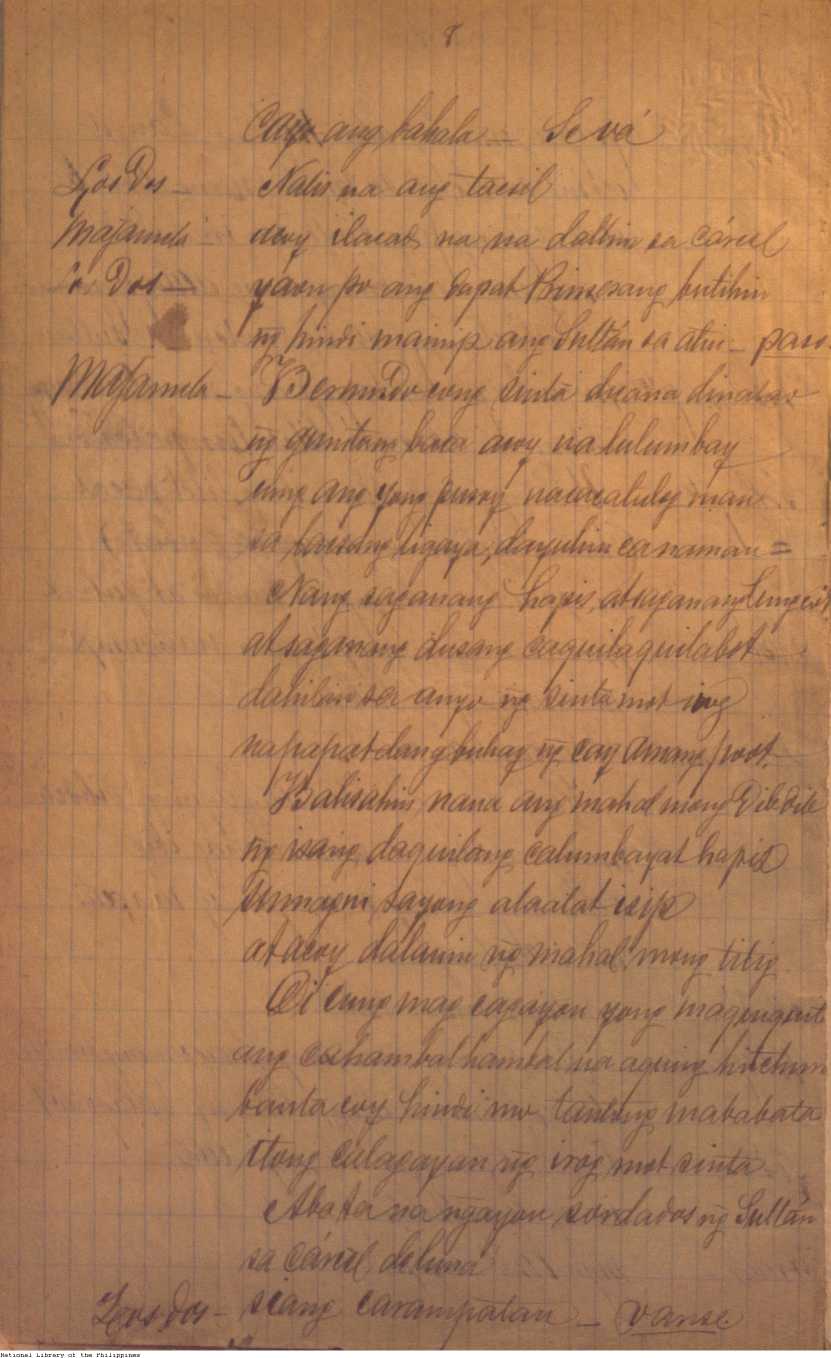 8
Cayo ang bahala — Se vá
Los Dos — Nalis na ang tacsil
Majamela — acoy ilacad na na dalhin sa cárcel
Los Dos — yaon po ang dapat Prinsesang butihin
ng hindi mainip ang Sultán sa atin — paso
Majamela — Bernardo cong sinta dica na dinatnan
ng gunitang baca acoy nalulumbay
cung ang yong puso'y nacacalulog man
sa tauang ligaya, dayuhin ca naman =
Nang saganang hapis, at saganang lungcot
at saganang dusang caquilaquilabot
dahilan sa anyo ng sinta mot irog
napapatdang buhay ng cay Amang poot.
Balisahin nana ang mahal mong Dibdib
ng isang daquilang calumbayat hapis
Umagni sayong alaalat isip
at acoy dalauin ng mahal mong titig
Di cung mag cagayon yong maquiquita
ang cahambalhambal na aquing hitchura
banta coy hindi mo tantong mababata
itong calagayan ng irog mot sinta
Abata na ngayon sordados ng Sultán
sa cárcel de luna
Los dos — siang carampatan — vanse
National Library of the Philippines